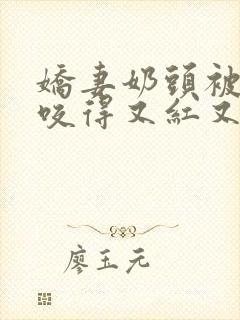 嬌妻奶頭被
咬得又紅又
廖玉元